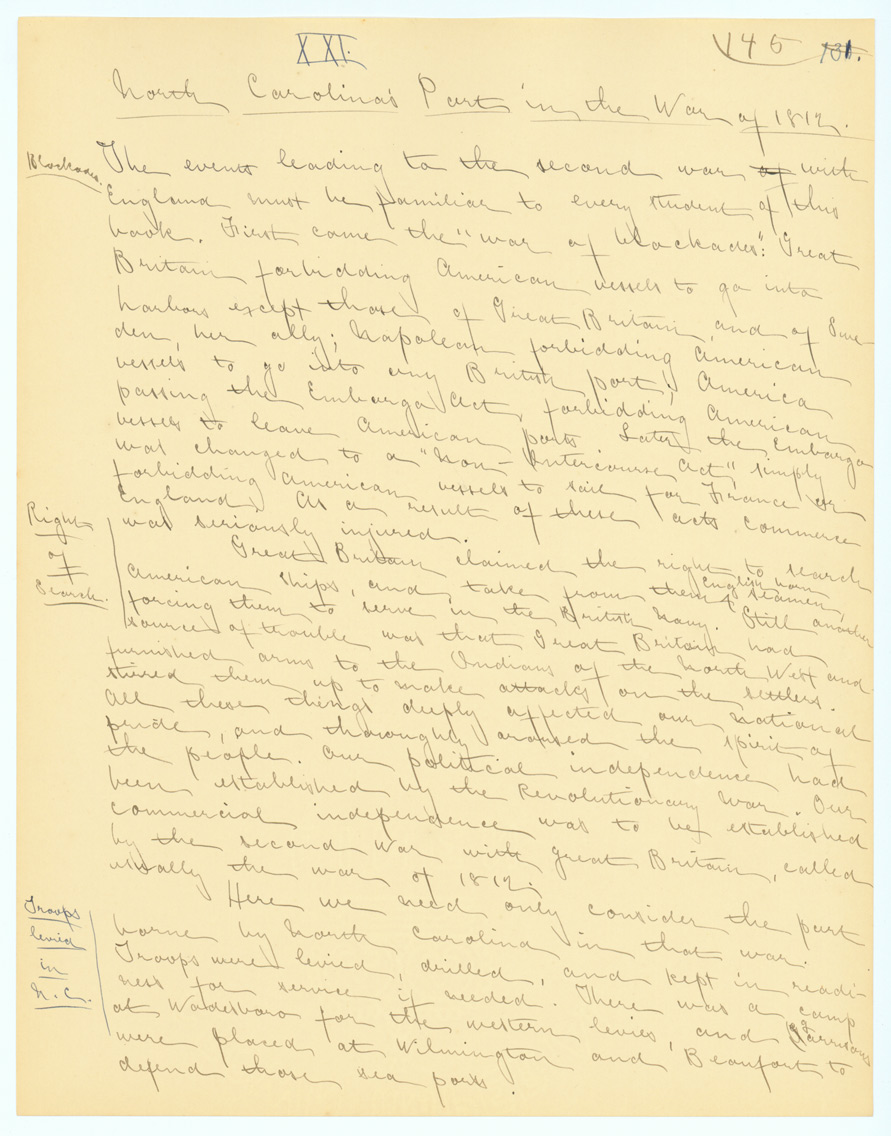 XXI.
145 131.
North Carolina's Part in the War of 1812.
Blockades.
The events leading to the second war of with
England must be familiar to every student of this
book. First came the "war of blockades": Great
Britain forbidding American vessels to go into
harbors except those of Great Britain and of Swe-
den, her ally; Napolean forbidding American
vessels to go into any British port; America
passing the Embargo Act, forbidding American
vessels to leave American ports. Later the Embargo
was changed to a "Non-Intercourse Act", simply
forbidding American vessels to sail for France or
England. As a result of these acts commerce
was seriously injured.
Right
of
Search.
Great Britain claimed the right to search
American ships, and take from them English born seamen,
forcing them to serve in the British Navy. Still another
source of trouble was that Great Britain had
furnished arms to the Indians of the North West and
stired them up to make attacks on the settlers.
All these things deeply affected our national
pride, and thoroughly aroused the spirit of
the people. Our political independence had
been established by the Revolutionary War. Our
commercial independence was to be established
by the second war with great Britain, called
usually the war of 1812.
Troops
levied
in
N.C.
Here we need only consider the part
borne by North Carolina in that war.
Troops were levied, drilled, and kept in readi-
ness for service if needed. There was a camp
at Wadesboro for the western levies, and Garrisons
were placed at Wilmington and Beaufort to
defend those sea ports.